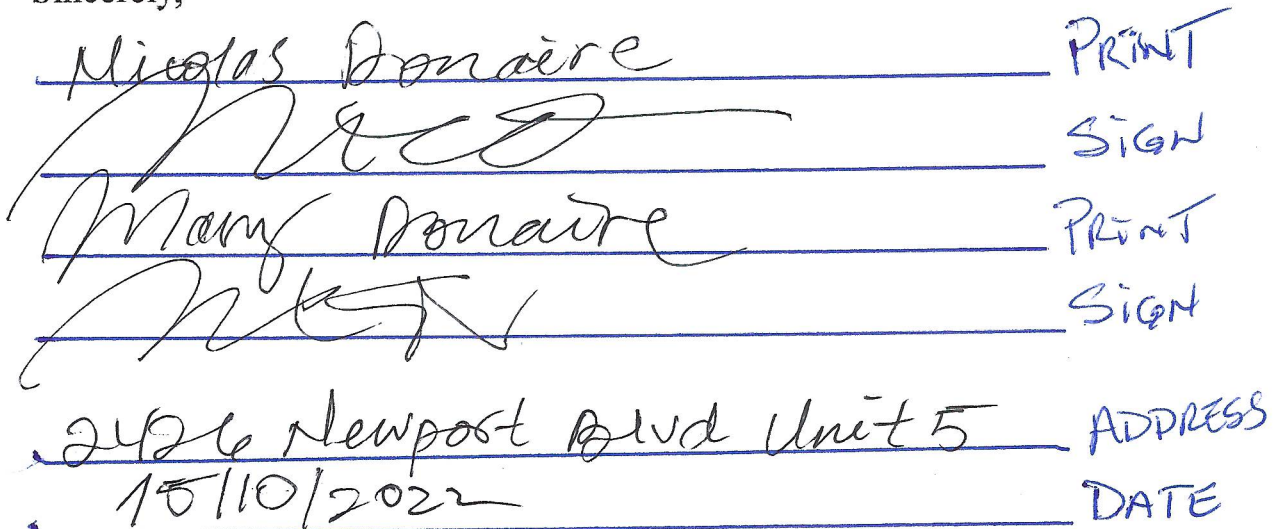 Sincerely,
Nicolas Donaire PRINT
SIGN
Mary Donaire PRINT
SIGN
2426 Newport Blvd Unit 5 ADDRESS
15/10/2022 DATE